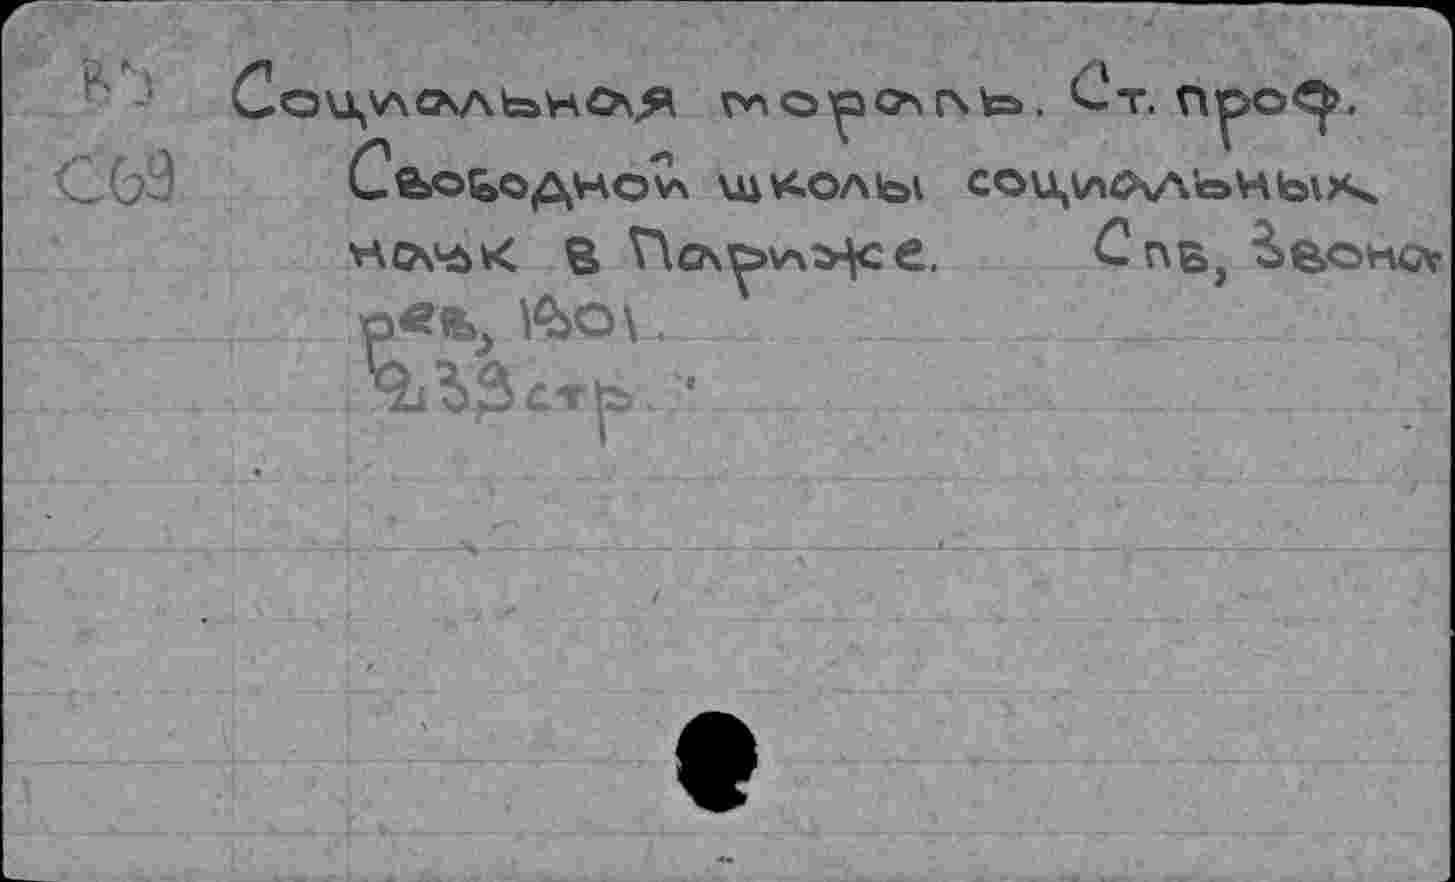 Социальная мораль. Ст. проф.
С69 Свободной школы социальных
наук в Париже. Спб, Звонар
рев, 1901.
стр.